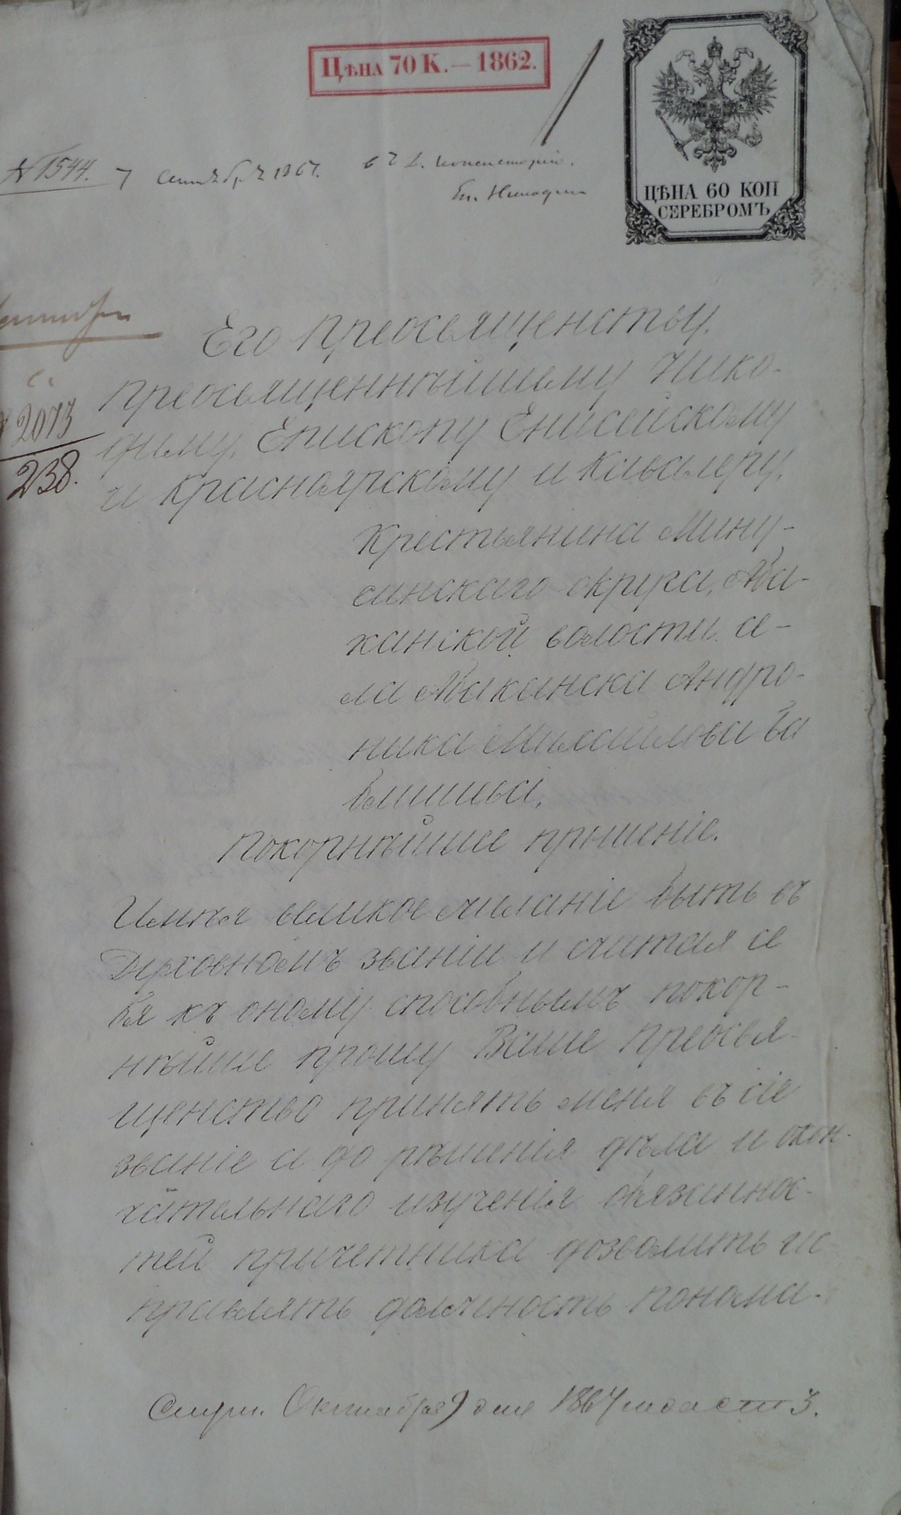 Цѣна 70 К. — 1862.
ЦѢНА 60 КОП
СЕРЕБРОМЪ
№ 1544. 7 сентября 1867. въ Д. Консисторію.
Еп. Никодим
2073
238.
Его Преосвященству,
Преосвященнѣйшему Нико-
диму, Епископу Енисейскому
и Красноярскому и Кавалеру,
Крестьянина Мину-
синскаго округа, Аба-
канской волости се-
ла Абаканска Андро-
ника Михайлова Ба
Покорнѣйшее прошеніе.
Имѣя великое желаніе быть въ
Духовномъ званіи и считая се
бя къ оному способнымъ покор-
нѣйше прошу Ваше Преосвя-
щенство принять меня въ сіе
званіе а до рѣшенія дѣла и окон-
чательнаго изученія обязаннос-
тей причетника дозволить ис
правлять должность понома-
Октября 9 дня 1867